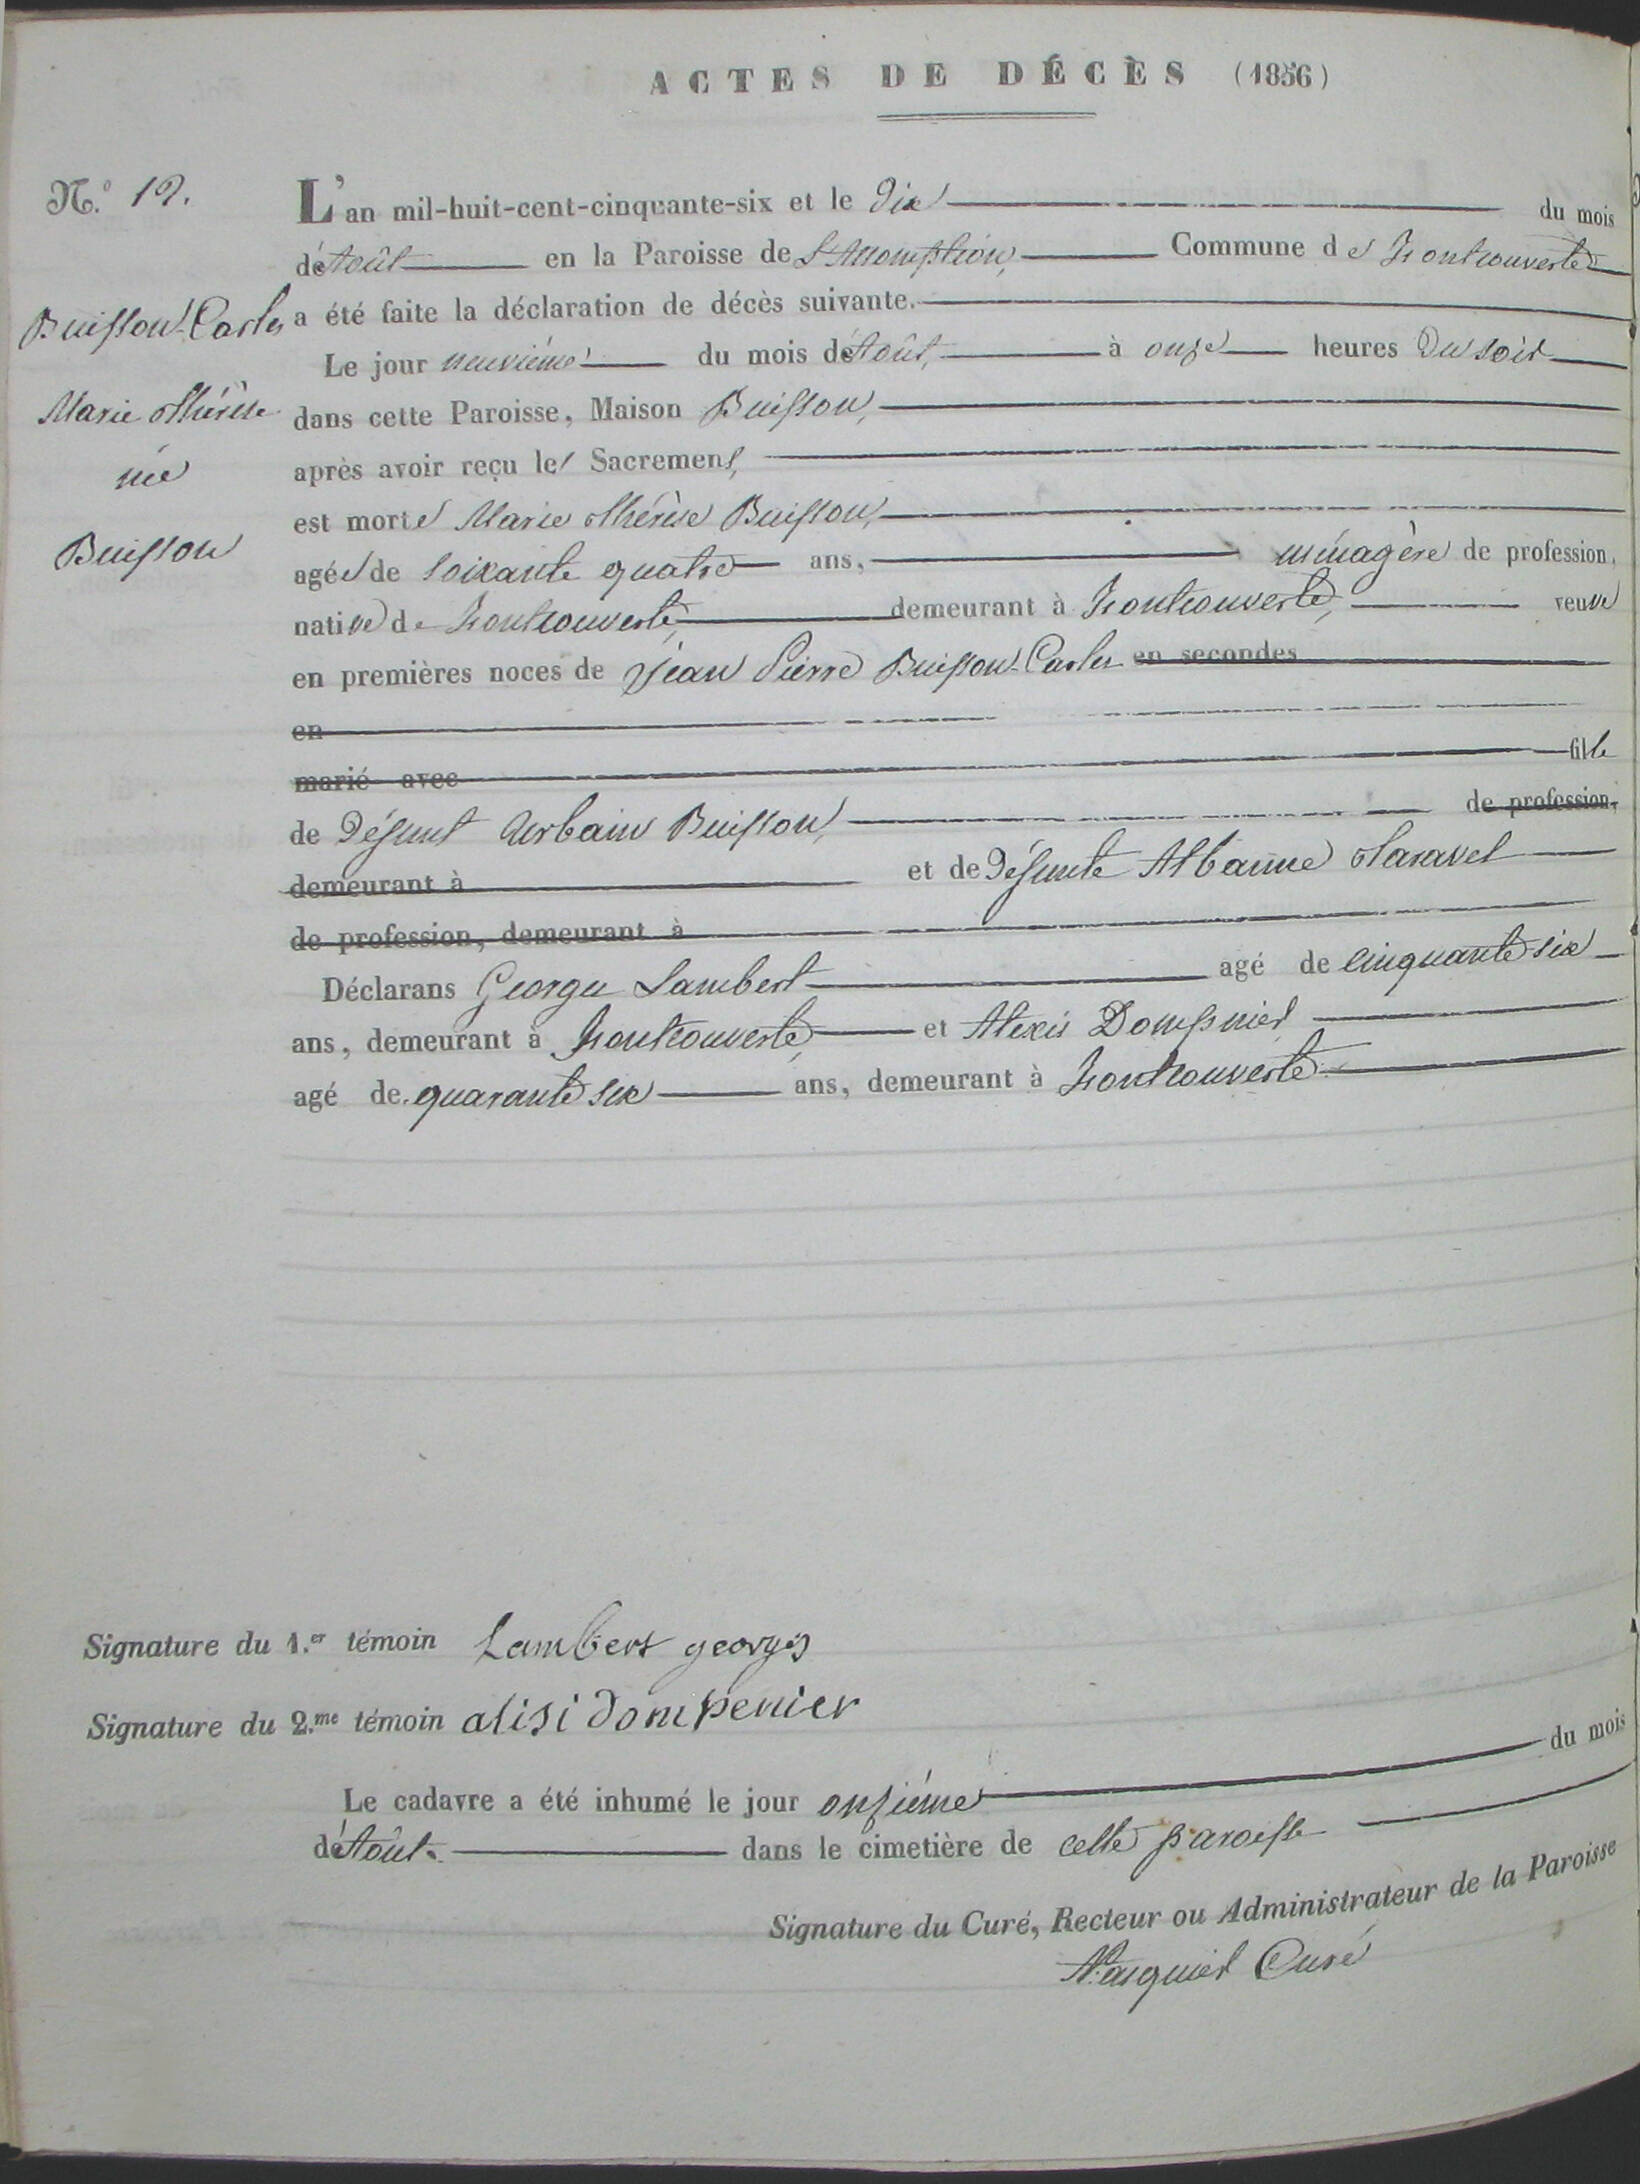 ACTES DE DÉCÈS (1856)
N.º 12.
L'an mil-huit-cent-cinquante-six et le Dix du mois
d'Août en la Paroisse de L'Assomption, Commune de Fontcouverte
Buisson-Carles
a été faite la déclaration de décès suivante.
Le jour neuvième du mois d'Août, à onze heures du soir
Marie Thérèse
dans cette Paroisse, Maison Buisson,
née
après avoir reçu les Sacremens,
est morte Marie Thérèse Buisson,
Buisson
agée de soixante quatre ans, ménagère de profession,
native de Fontcouverte, demeurant à Fontcouverte, veuve
en premières noces de Jean Pierre Buisson-Carles en secondes
en
marié avec fille
de Défunt Urbain Buisson, de profession,
demeurant à et de Défunte Albanne Taravel
de profession, demeurant à
Déclarans George Lambert agé de cinquante six
ans, demeurant à Fontcouverte, et Alexis Dompnier
agé de quarante six ans, demeurant à Fontcouverte
Signature du 1.er témoin Lambert georges
Signature du 2.me témoin alisi dompenier
Le cadavre a été inhumé le jour onzième du mois
d'Août. dans le cimetière de cette paroisse
Signature du Curé, Recteur ou Administrateur de la Paroisse
Curé